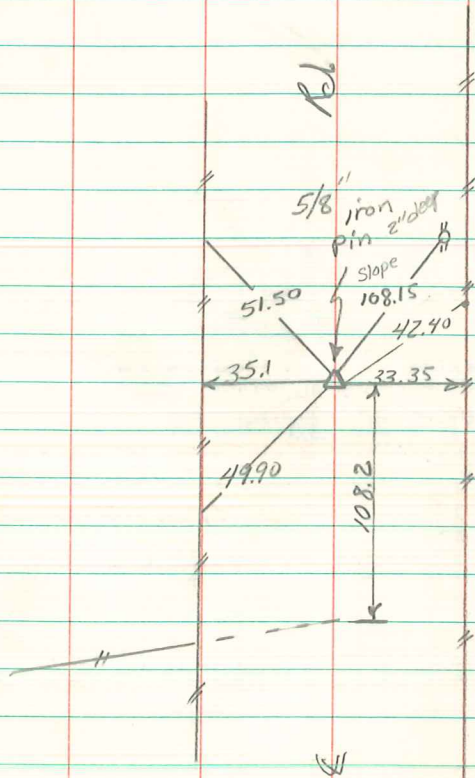 Rd
5/8" iron
pin 2" deep
Slope
51.50
108.15
42.40
35.1
33.35
49.90
108.2